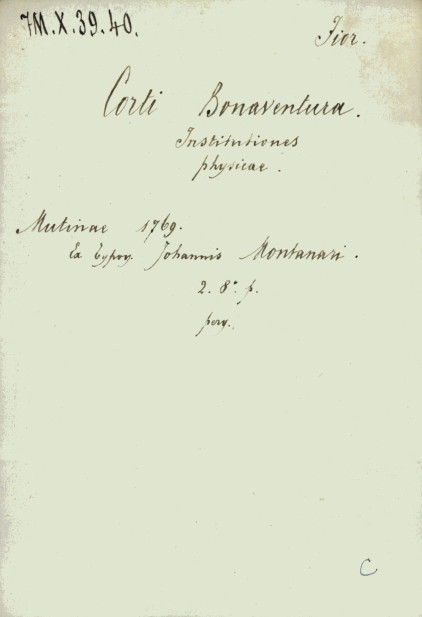 7M.X.39.40.
Fior.
Corti Bonaventura.
Institutiones
physicae.
Mutinae 1769.
Ex typog. Johannis Montanari.
2. 8°. p.
perg.
C